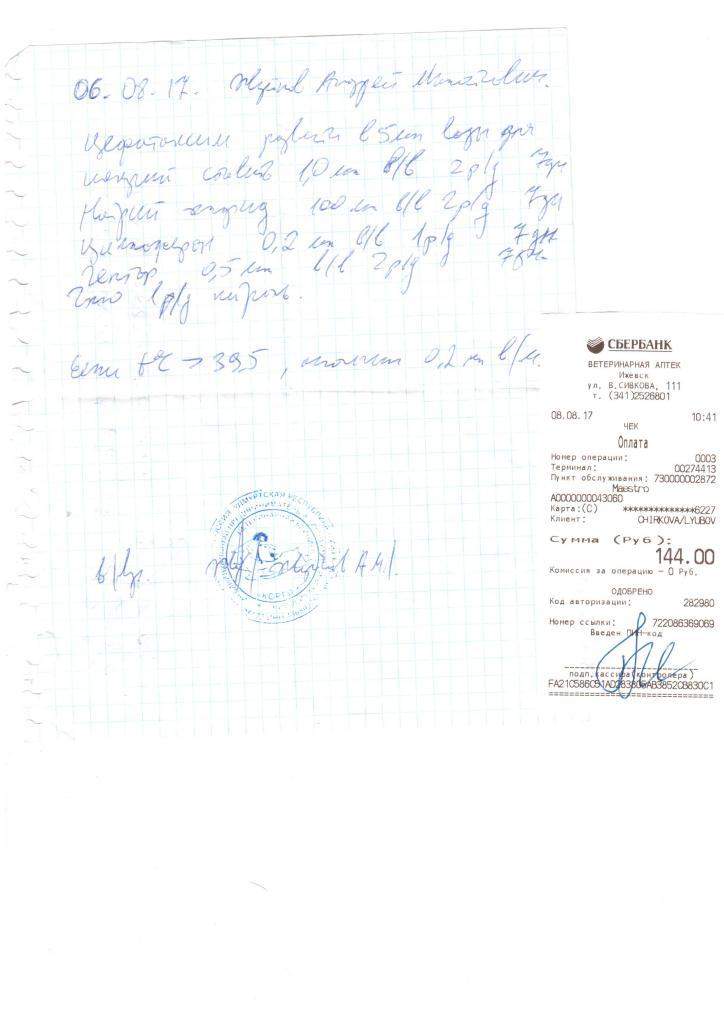 06.08.17. Андрей
Цефотаксим развести в 5 мл воды для
ставить 1,0 мл в/в 2р/д 7дн
Натрий хлорид 100 мл в/в 2р/д 7дн
Циклоферон 0,2 мл в/в 1р/д 7дн
Гептор 0,5 мл в/в 2р/д 7дн
1р/д
Если t°C > 39,5, 0,2 мл в/м.
в/вр. А.М.
СБЕРБАНК
ВЕТЕРИНАРНАЯ АПТЕК
Ижевск
ул. В.СИВКОВА, 111
т. (341)2526801
08.08.17 10:41
ЧЕК
Оплата
Номер операции: 0003
Терминал: 00274413
Пункт обслуживания: 730000002872
Maestro
A0000000043060
Карта:(C) ************6227
Клиент: CHIRKOVA/LYUBOV
Сумма (Руб):
144.00
Комиссия за операцию - 0 Руб.
ОДОБРЕНО
Код авторизации: 282980
Номер ссылки: 722086369069
Введен ПИН-код
подп.кассира(контролера)